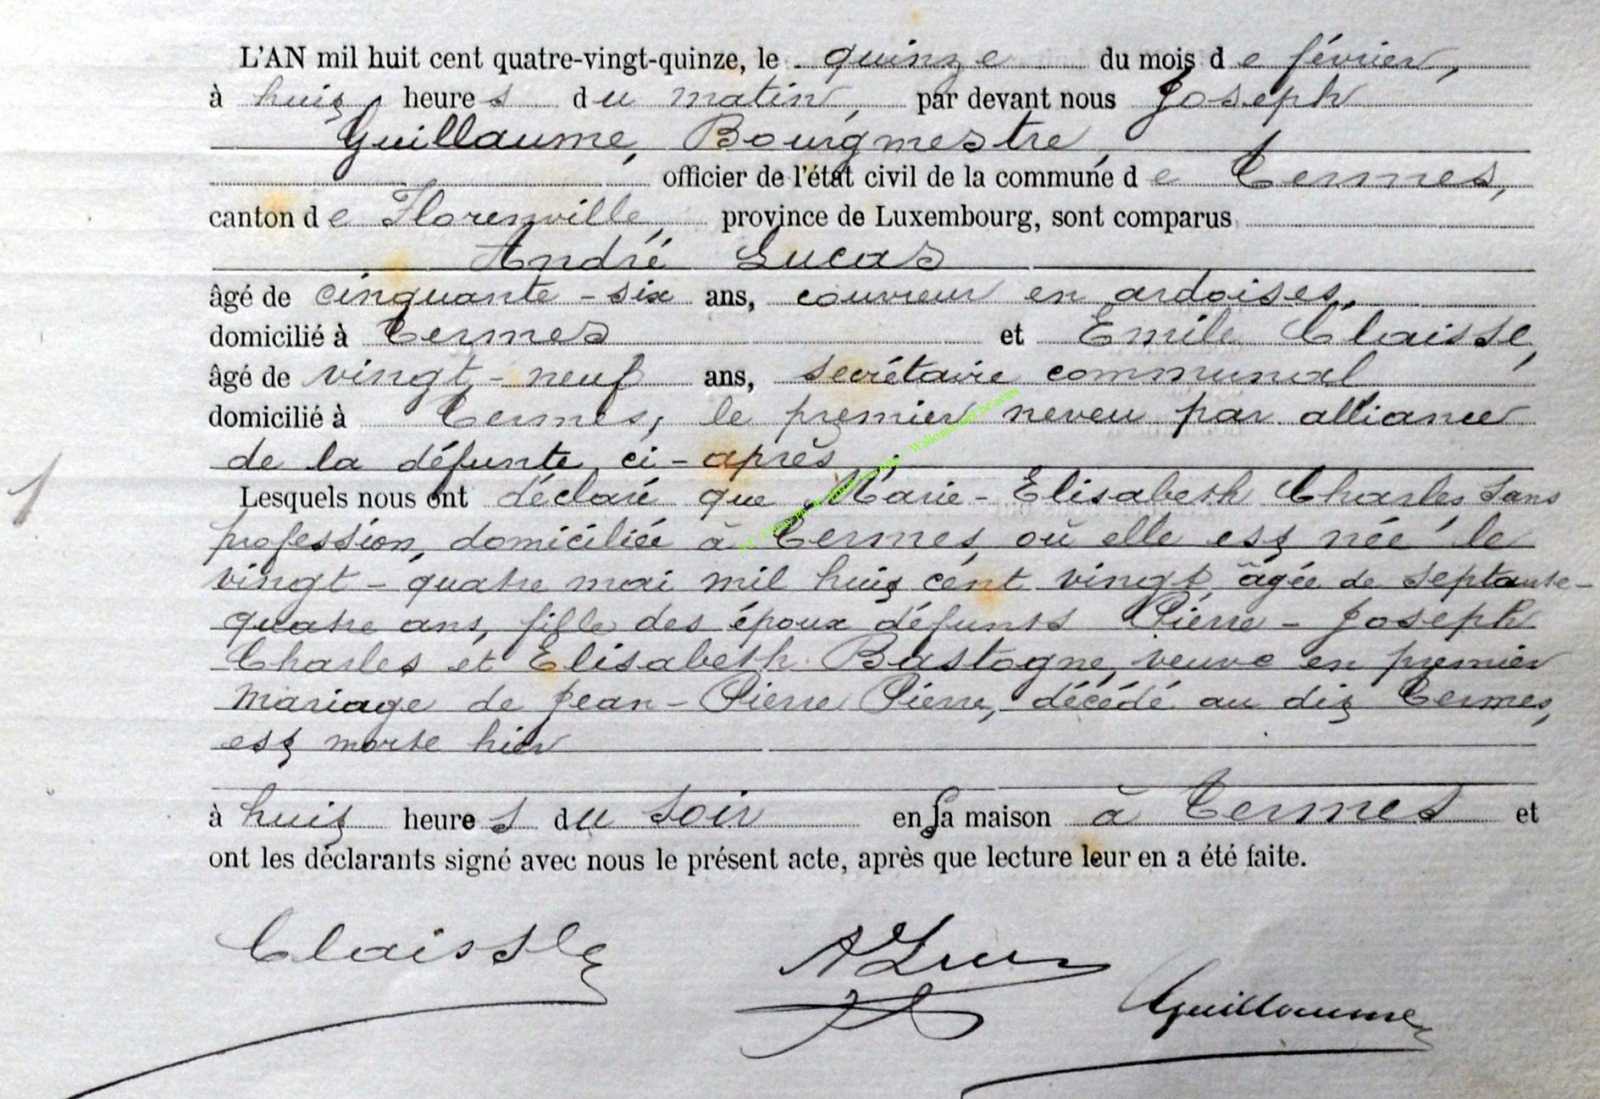 L'AN mil huit cent quatre-vingt-quinze, le quinze du mois de février,
à huit heures du matin, par devant nous Joseph
Guillaume, Bourgmestre,
officier de l'état civil de la commune de Termes,
canton de Florenville, province de Luxembourg, sont comparus
André Lucas
âgé de cinquante-six ans, couvreur en ardoises,
domicilié à Termes et Emile Claisse,
âgé de vingt-neuf ans, secrétaire communal
domicilié à Termes, le premier neveu par alliance
de la défunte ci-après
Lesquels nous ont déclaré que Marie-Elisabeth Charles sans
profession, domiciliée à Termes, où elle est née le
vingt-quatre mai mil huit cent vingt, âgée de septante-
quatre ans, fille des époux défunts Pierre-Joseph
Charles et Elisabeth Bastogne, veuve en premier
mariage de Jean-Pierre Pierre, décédé au dit Termes,
est morte hier
à huit heures du soir en sa maison à Termes et
ont les déclarants signé avec nous le présent acte, après que lecture leur en a été faite.
Claisse
A Lucas
Guillaume